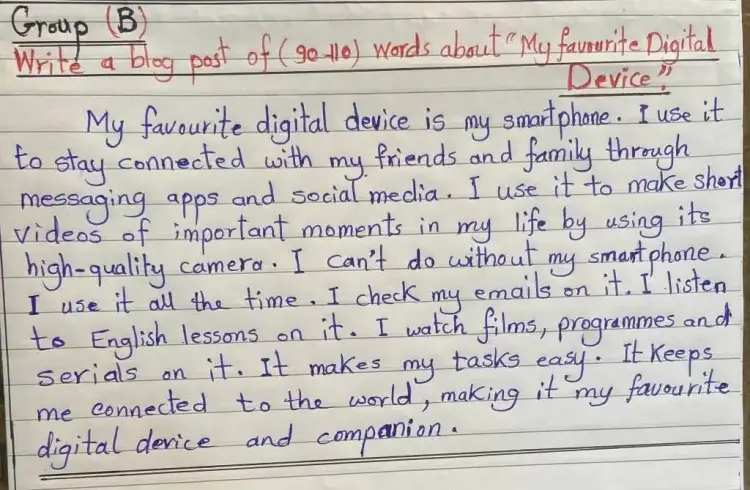 Group (B)
Write a blog post of (90-110) words about "My favourite Digital
Device."
My favourite digital device is my smartphone. I use it
to stay connected with my friends and family through
messaging apps and social media. I use it to make short
videos of important moments in my life by using its
high-quality camera. I can't do without my smartphone.
I use it all the time. I check my emails on it. I listen
to English lessons on it. I watch films, programmes and
serials on it. It makes my tasks easy. It keeps
me connected to the world, making it my favourite
digital device and companion.